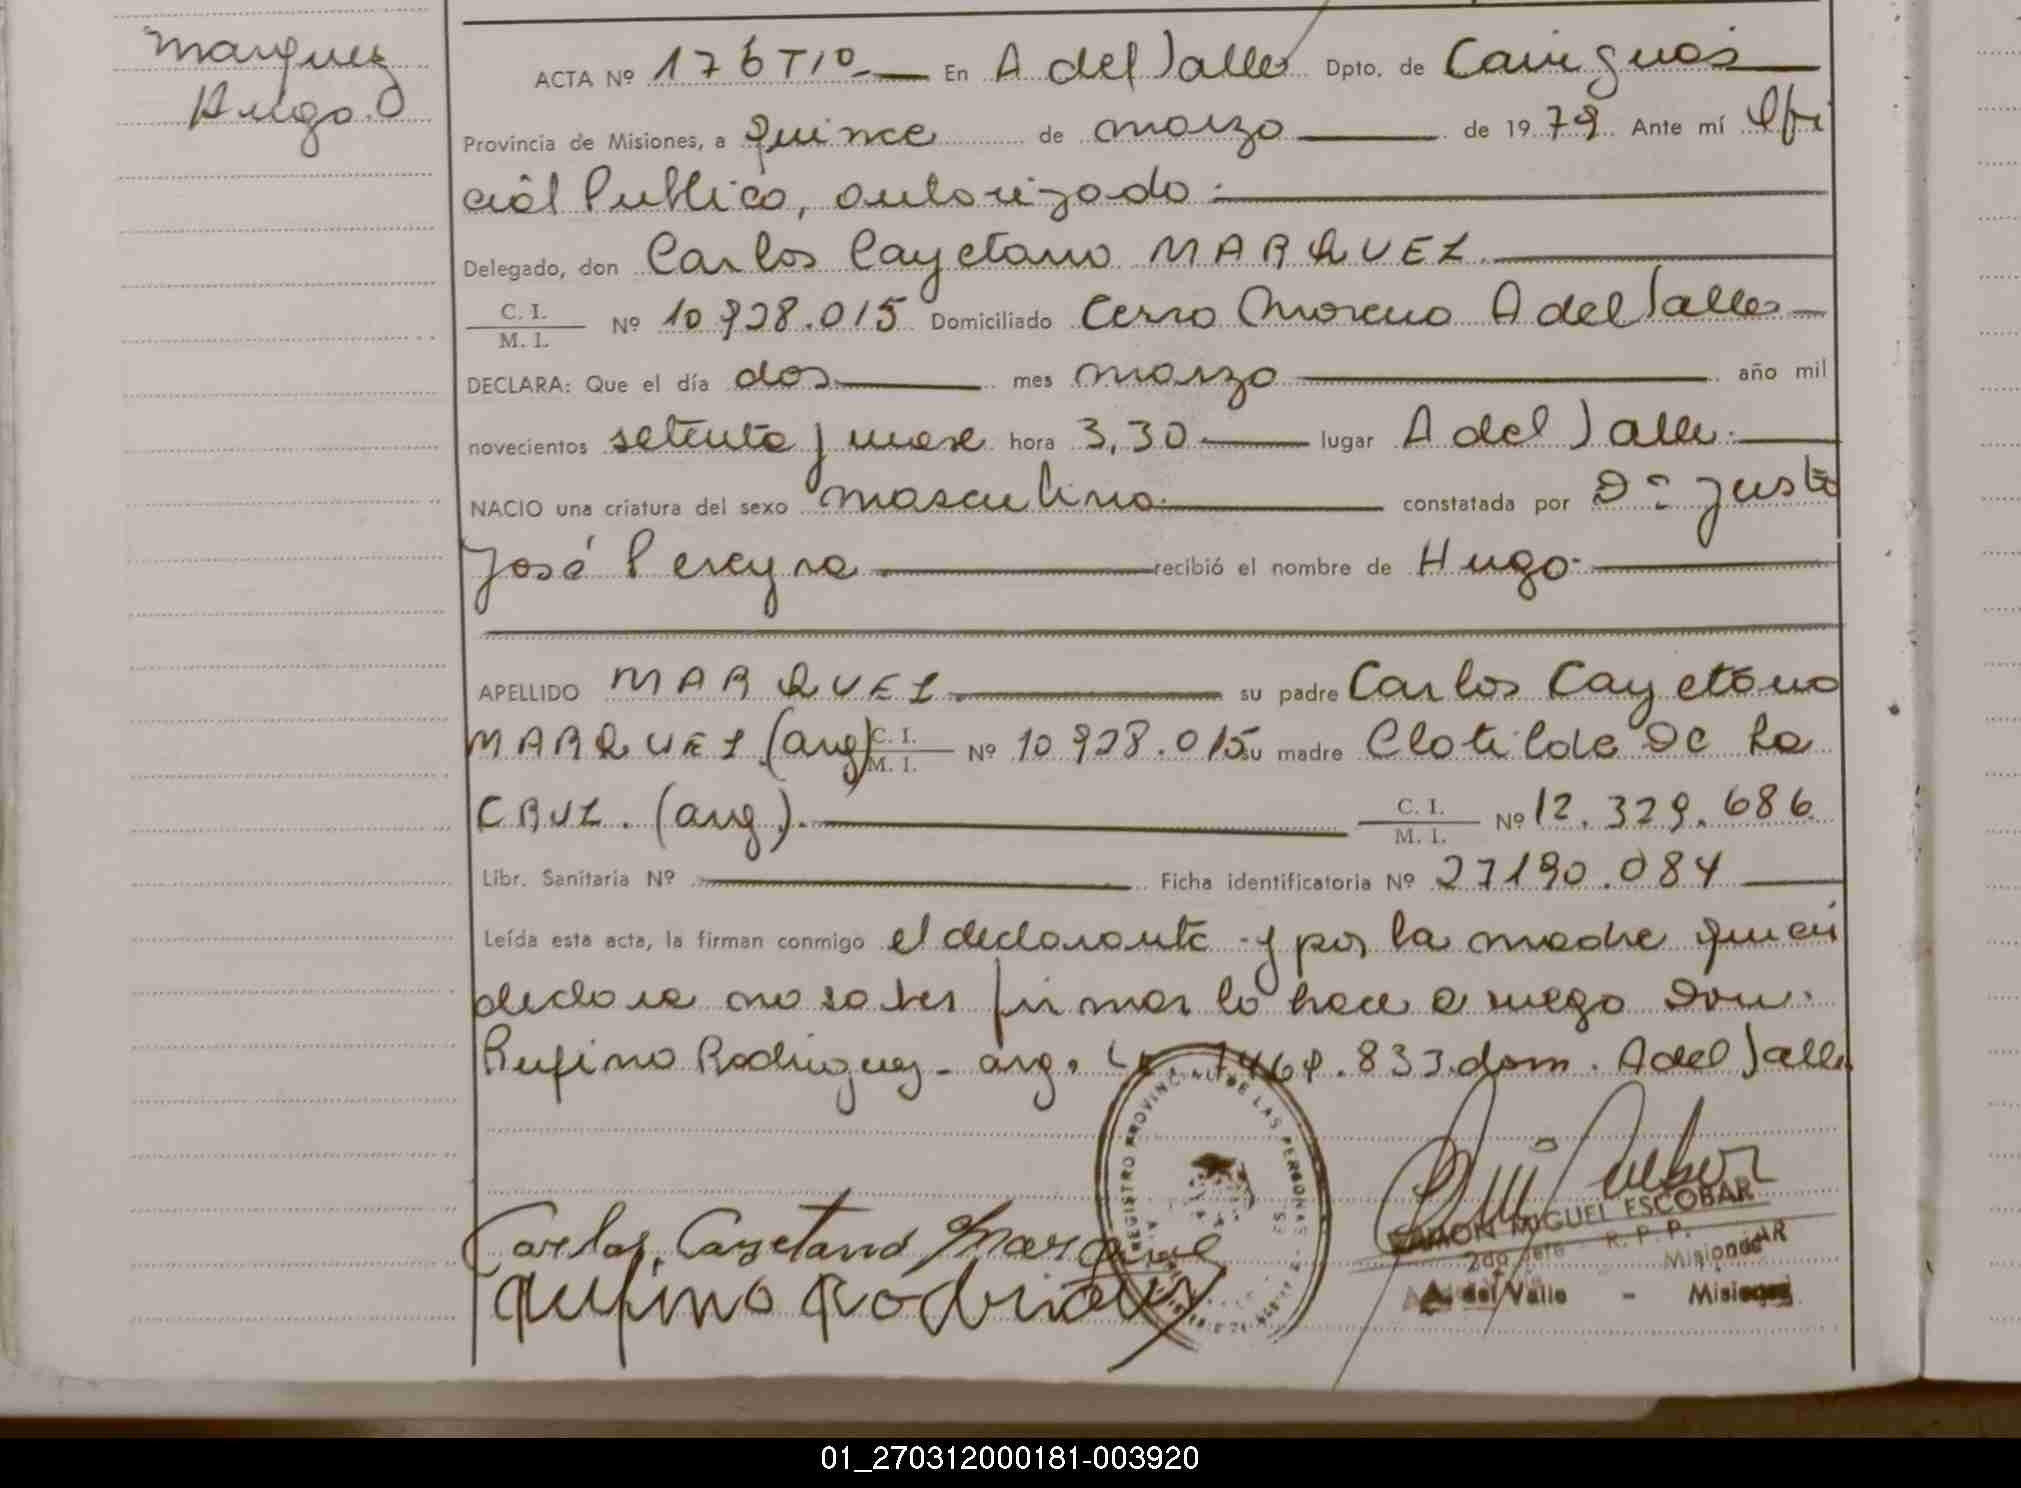 Marquez
Hugo.
ACTA Nº 176 Tº En A del Valle Dpto. de Cainguas
Provincia de Misiones, a quince de marzo de 1979. Ante mí Ofi
cial Publico, autorizado.
Delegado, don Carlos Cayetano MARQUEZ.
C. I.
M. I. Nº 10 928.015 Domiciliado Cerro Moreno A del Valle
DECLARA: Que el día dos mes marzo año mil
novecientos setenta y nueve hora 3,30 lugar A del Valle.
NACIO una criatura del sexo masculino constatada por Dn Justo
José Pereyra recibió el nombre de Hugo
APELLIDO MARQUEZ su padre Carlos Cayetano
MARQUEZ (arg) C. I. M. I. Nº 10 928.015 su madre Clotilde De La
CRUZ. (arg). C. I. M. I. Nº 12.329.686
Libr. Sanitaria Nº Ficha identificatoria Nº 27190.084
Leída esta acta, la firman conmigo el declarante y por la madre quien
declara no saber firmar lo hace a ruego Don.
Rufino Rodriguez - arg. .833 dom. A del Valle
REGISTRO PROVINCIAL DE LAS PERSONAS
Carlos Cayetano Marquez
Rufino Rodriguez
RAMON MIGUEL ESCOBAR
2do Jefe R. P. P.
Misiones
A. del Valle - Misiones
01_270312000181-003920